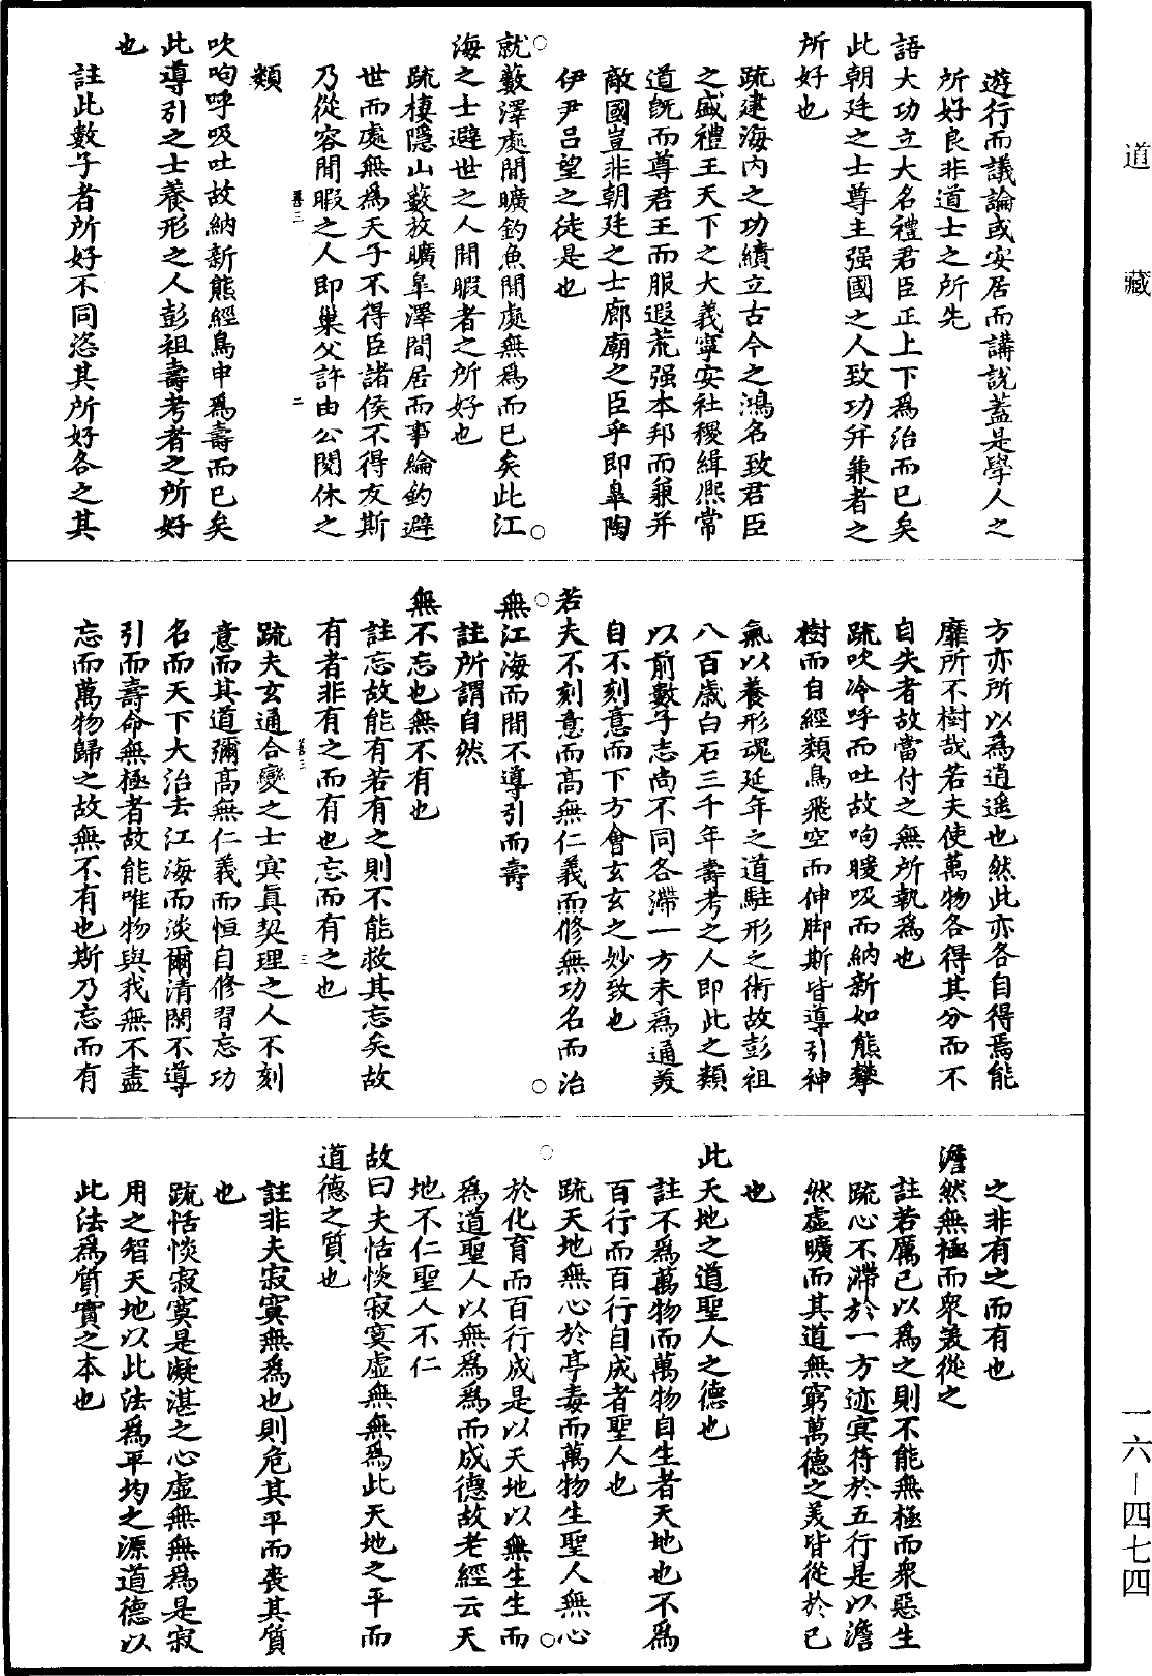 道藏
遊行而議論或安居而講說蓋是學人之
所好良非道士之所先
語大功立大名禮君臣正上下爲治而已矣
此朝廷之士尊主强國之人致功并兼者之
所好也
疏建海內之功績立古今之鴻名致君臣
之盛禮王天下之大義寧安社稷緝熙常
道旣而尊君王而服遐荒强本邦而兼并
敵國豈非朝廷之士廊廟之臣乎即臯陶
伊尹呂望之徒是也
就藪澤處閒曠釣魚閒處無爲而已矣此江
海之士避世之人閒暇者之所好也
疏棲隱山藪放曠臯澤閒居而事綸釣避
世而處無爲天子不得臣諸侯不得友斯
乃從容閒暇之人即巢父許由公閱休之
善三 二
類
吹呴呼吸吐故納新熊經鳥申爲壽而已矣
此導引之士養形之人彭祖壽考者之所好
也
註此數子者所好不同恣其所好各之其
方亦所以爲逍遥也然此亦各自得焉能
靡所不樹哉若夫使萬物各得其分而不
自失者故當付之無所執爲也
疏吹冷呼而吐故呴暖吸而納新如熊攀
樹而自經類鳥飛空而伸脚斯皆導引神
氣以養形魂延年之道駐形之術故彭祖
八百歲白石三千年壽考之人即此之類
以前數子志尚不同各滯一方未爲通美
自不刻意而下方會玄玄之妙致也
若夫不刻意而高無仁義而修無功名而治
無江海而閒不導引而壽
註所謂自然
無不忘也無不有也
註忘故能有若有之則不能救其忘矣故
有者非有之而有也忘而有之也
善三 三
疏夫玄通合變之士冥眞契理之人不刻
意而其道彌高無仁義而恒自修習忘功
名而天下大治去江海而淡爾清閑不導
引而壽命無極者故能唯物與我無不盡
忘而萬物歸之故無不有也斯乃忘而有
之非有之而有也
澹然無極而衆美從之
註若厲己以爲之則不能無極而衆惡生
疏心不滯於一方迹冥符於五行是以澹
然虛曠而其道無窮萬德之美皆從於己
也
此天地之道聖人之德也
註不爲萬物而萬物自生者天地也不爲
百行而百行自成者聖人也
疏天地無心於亭毒而萬物生聖人無心
於化育而百行成是以天地以無生生而
爲道聖人以無爲爲而成德故老經云天
地不仁聖人不仁
故曰夫恬惔寂寞虛無無爲此天地之平而
道德之質也
註非夫寂寞無爲也則危其平而喪其質
也
疏恬惔寂寞是凝湛之心虛無無爲是寂
用之智天地以此法爲平均之源道德以
此法爲質實之本也
一六—四七四